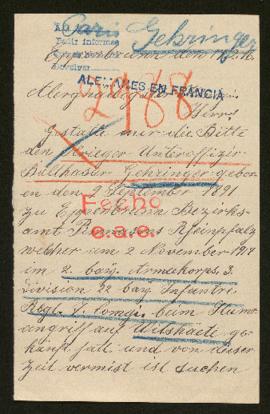 Paris
Pedir informes
Gehringer
Eppenbrunn den
ALEMANES EN FRANCIA
2988
Herr!
Gestatte mir die Bitte
den Krieger Unteroffizier
Balthasar Gehringer gebor-
en den 2 September 1891
zu Eppenbrunn Bezirks-
amt Pirmasens Rheinpfalz
Fecho
e.a.e.
welcher am 2 November 1914
im 2. bay. Armeekorps 3.
Division 22 bay. Infantrie
Regt. 8. Comg. beim Sturm
angriff auf Witshaete ge-
kämpft hat und von dieser
Zeit vermist ist suchen